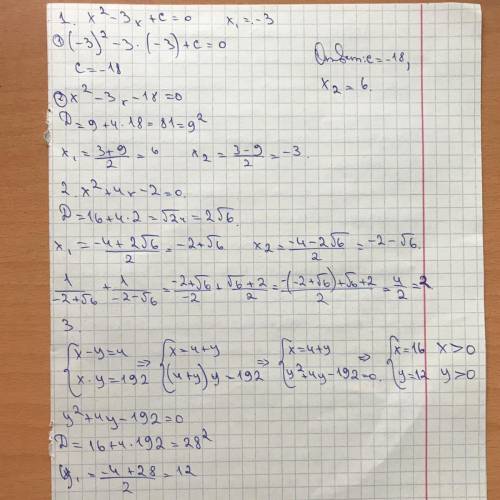 1. x² - 3x + c = 0   x₁ = -3
① (-3)² - 3·(-3) + c = 0
c = -18
Ответ: c = -18,
x₂ = 6.
② x² - 3x - 18 = 0
D = 9 + 4·18 = 81 = 9²
x₁ = (3+9)/2 = 6   x₂ = (3-9)/2 = -3.
2. x² + 4x - 2 = 0.
D = 16 + 4·2 = √24 = 2√6.
x₁ = (-4+2√6)/2 = -2+√6   x₂ = (-4-2√6)/2 = -2-√6.
1/(-2+√6) + 1/(-2-√6) = (-2+√6)/(-2) + (√6+2)/2 = (-(-2+√6)+√6+2)/2 = 4/2 = 2
3.
{x - y = 4 ⇒ {x = 4+y ⇒ {x = 4+y ⇒ {x = 16   x > 0
{x · y = 192   {(4+y)y = 192   {y² + 4y - 192 = 0.   {y = 12   y > 0
y² + 4y - 192 = 0
D = 16 + 4·192 = 28²
y₁ = (-4+28)/2 = 12